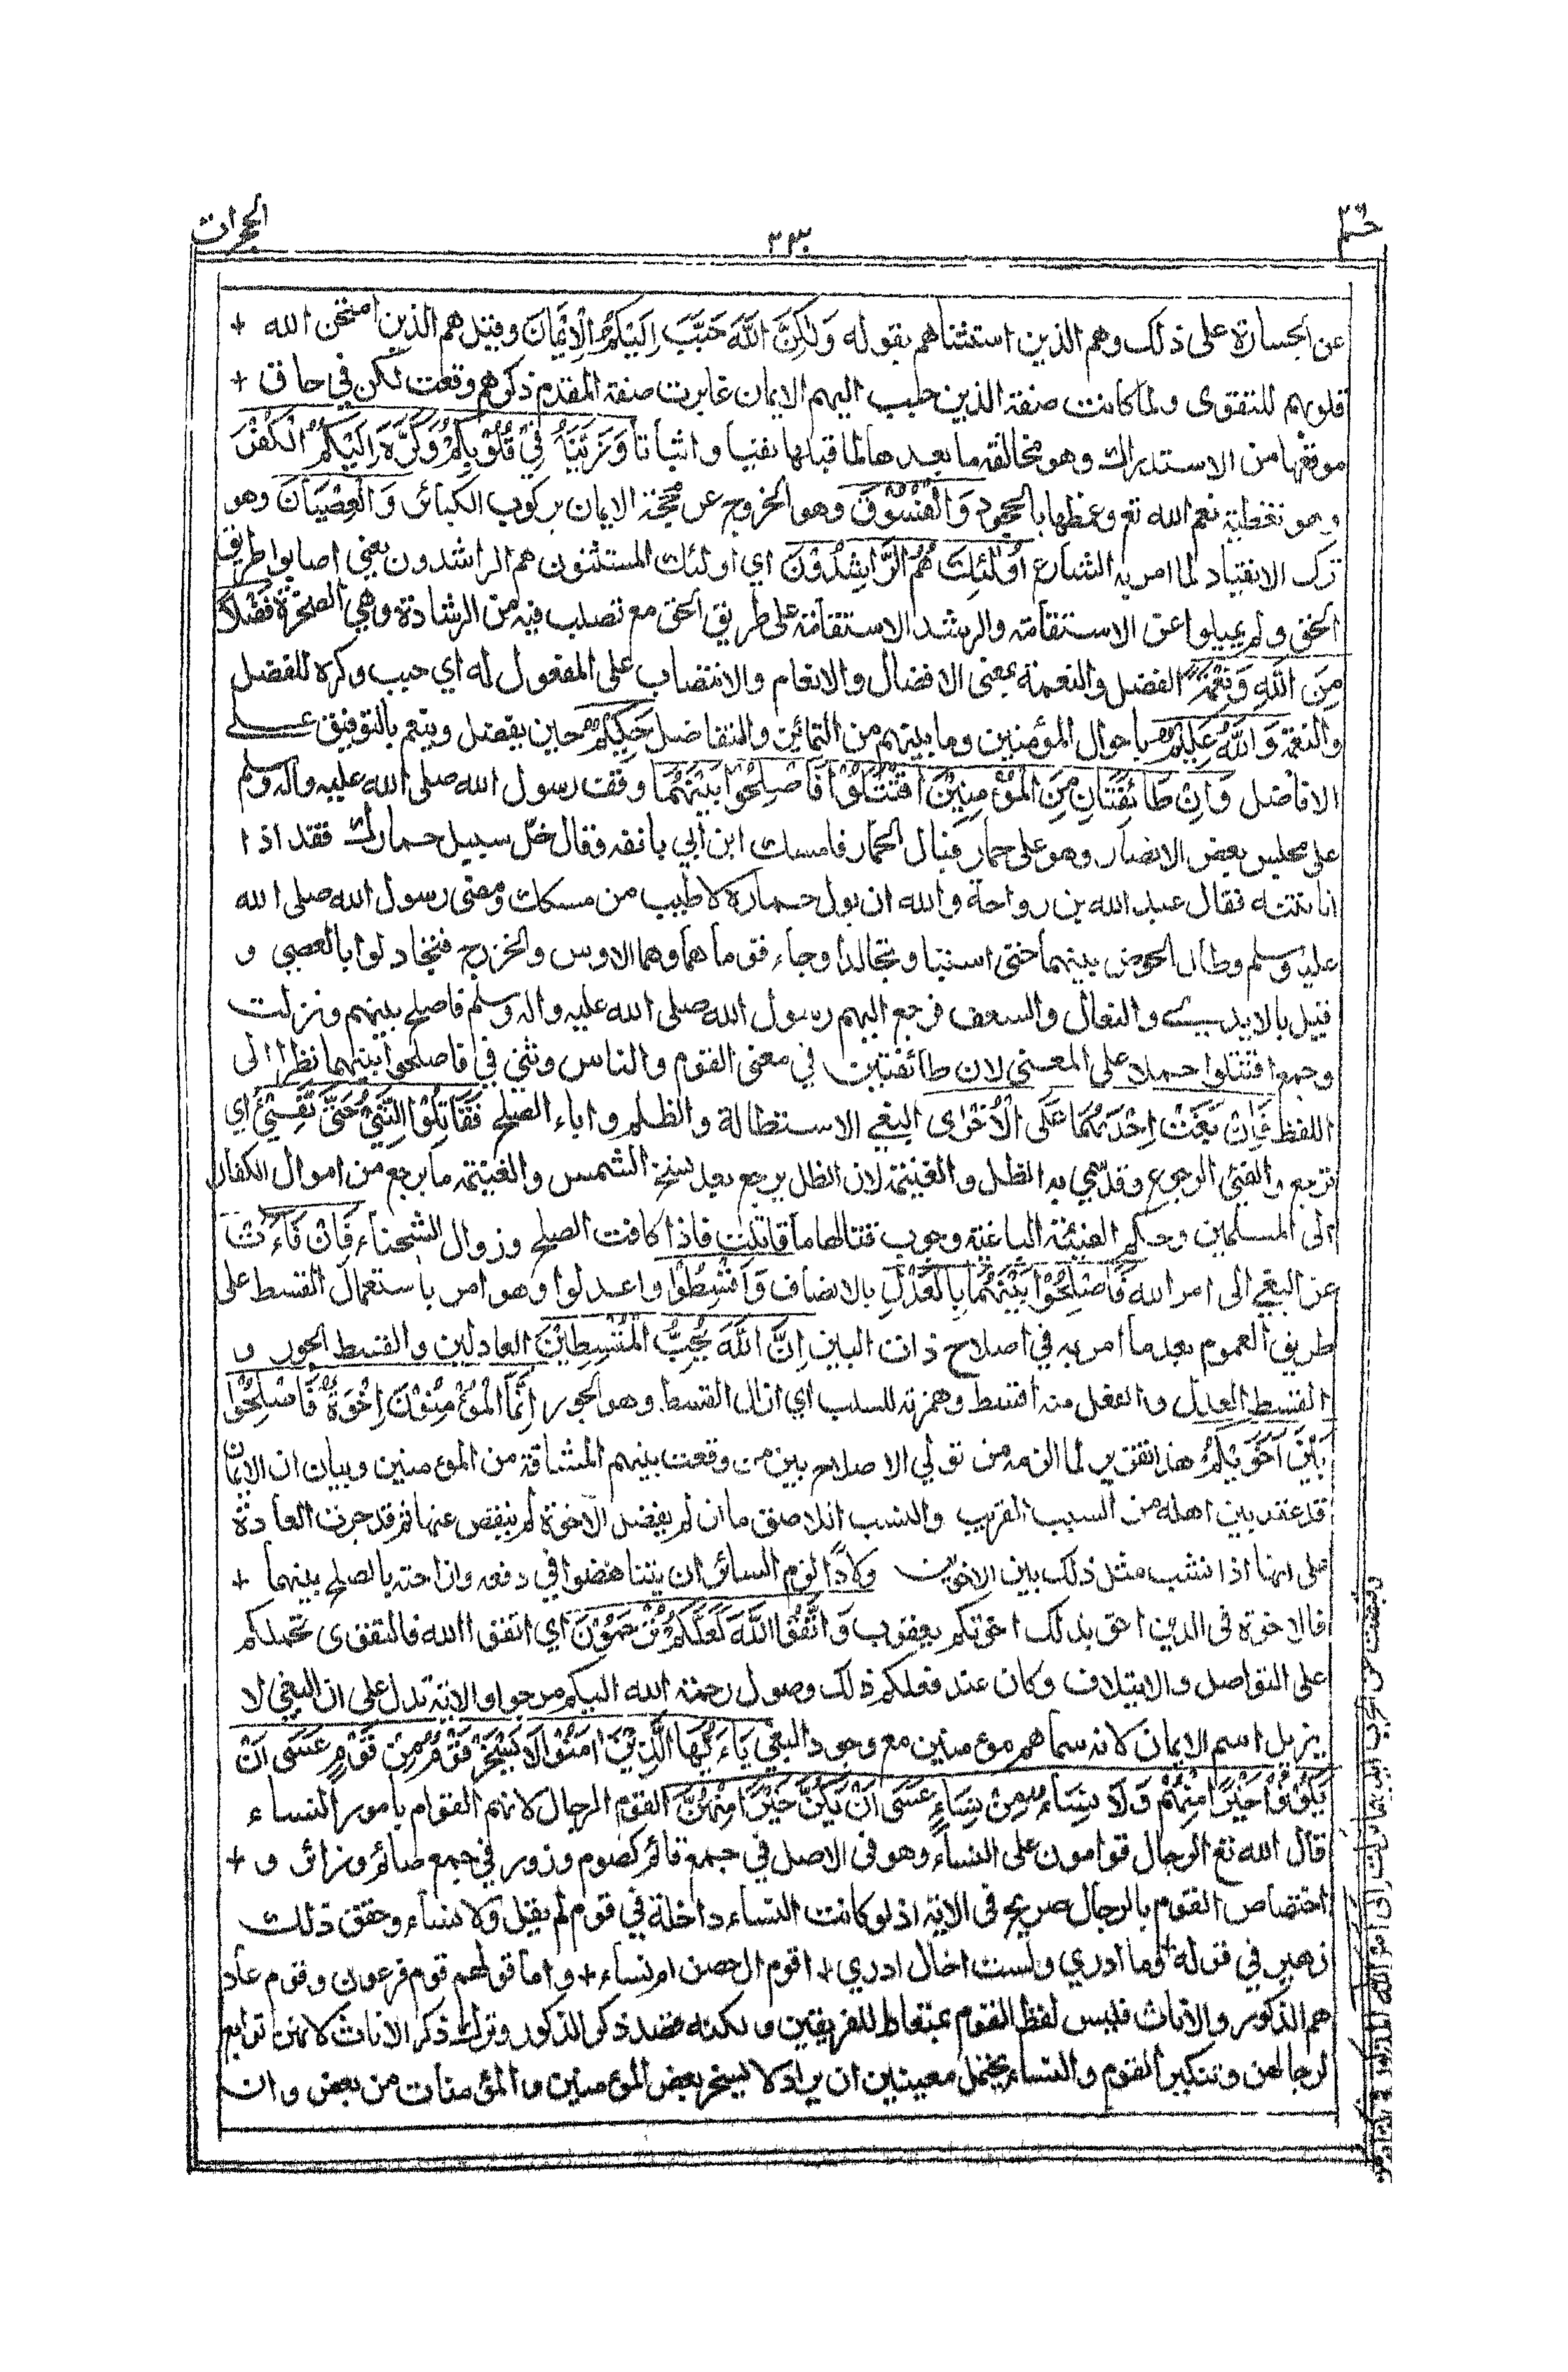 حم ٢٦
٣٣٣
الحجرات
عن الجسارة على ذلك وهم الذين استثناهم بقوله وَلٰكِنَّ اللّٰهَ حَبَّبَ اِلَيْكُمُ الْاِيْمَانَ وقيل هم الذين امتحن الله +
قلوبهم للتقوى ولما كانت صفة الذين حبب اليهم الايمان غايرت صفة المقدم ذكرهم وقعت لكن في حاق +
موقعها من الاستدراك وهو مخالفة ما بعدها لما قبلها نفيا واثباتا وَزَيَّنَهٗ فِيْ قُلُوْبِكُمْ وَكَرَّهَ اِلَيْكُمُ الْكُفْرَ
وهو تغطية نعم الله تع وغمطها بالجحود وَالْفُسُوْقَ وهو الخروج عن محجة الايمان بركوب الكبائر وَالْعِصْيَانَ وهو
ترك الانقياد لما امر به الشارع اُولٰئِكَ هُمُ الرَّاشِدُوْنَ اي اولئك المستثنون هم الراشدون يعني اصابوا طريق
الحق ولم يميلوا عن الاستقامة والرشد الاستقامة على طريق الحق مع تصلب فيه من الرشادة وهي الصخرة فَضْلًا
مِنَ اللّٰهِ وَنِعْمَةً الفضل والنعمة بمعنى الافضال والانعام والانتصاب على المفعول له اي حبب وكره للفضل
والنعمة وَاللّٰهُ عَلِيْمٌ باحوال المؤمنين وما بينهم من التمائز والتفاضل حَكِيْمٌ حين يفضل وينعم بالتوفيق على
الافاضل وَاِنْ طَائِفَتَانِ مِنَ الْمُؤْمِنِيْنَ اقْتَتَلُوْا فَاَصْلِحُوْا بَيْنَهُمَا وقف رسول الله صلى الله عليه واله وسلم
على مجلس بعض الانصار وهو على حمار فبال الحمار فامسك ابن ابي بانفه وقال خل سبيل حمارك فقد اذا
نا نتنه فقال عبد الله بن رواحة والله ان بول حماره لاطيب من مسكك ومضى رسول الله صلى الله
عليه وسلم وطال الخوض بينهما حتى استبا وتجالدا وجاء قوما هما وهما الاوس والخزرج فتجادلوا بالعصي و
قيل بالايدي والنعال والسعف فرجع اليهم رسول الله صلى الله عليه واله وسلم فاصلح بينهم ونزلت
وجمع اقتتلوا حملا على المعنى لان طائفتين في معنى القوم والناس وثني في فاصلحوا بينهما نظرا الى
اللفظ فَاِنْ بَغَتْ اِحْدٰىهُمَا عَلَى الْاُخْرٰى البغي الاستطالة والظلم واباء الصلح فَقَاتِلُوا الَّتِيْ حَتّٰى تَفِيْءَ اي
ترجع والفيئ الرجوع وقد سمي به الظل والغنيمة لان الظل يرجع بعد نسخ الشمس والغنيمة ما يرجع من اموال الكفار
الى المسلمين وحكم الفيئة الباغية وجوب قتالها ما قاتلت فاذا كافت الصلح وزوال الشحناء فَاِنْ فَاءَتْ
عن البغي الى امر الله فَاَصْلِحُوْا بَيْنَهُمَا بِالْعَدْلِ بالانصاف وَاَقْسِطُوْا واعدلوا وهو امر باستعمال القسط على
طريق العموم بعد ما امر به في اصلاح ذات البين اِنَّ اللّٰهَ يُحِبُّ الْمُقْسِطِيْنَ العادلين والقسط الجور و
القسط العدل والفعل منه اقسط وهمزته للسلب اي ازال القسط وهو الجور اِنَّمَا الْمُؤْمِنُوْنَ اِخْوَةٌ فَاَصْلِحُوْا
بَيْنَ اَخَوَيْكُمْ هذا تقرير لما الزمه من تولي الاصلاح بين من وقعت بينهم المشاقة من المؤمنين وبيان ان الايمان
قد عقد بين اهله من السبب القريب والنسب اللاصق ما ان لم يفضل الاخوة لم ينقص عنها ثم قد جرت العادة
على انها اذا نشب مثل ذلك بين الاخوين ولادا لزم السائر ان يتناهضوا في دفعه وازاحته بالصلح بينهما +
فالاخوة في الدين احق بذلك اخوتكم يعقوب وَاتَّقُوا اللّٰهَ لَعَلَّكُمْ تُرْحَمُوْنَ اي اتقوا الله فالتقوى تحملكم
على التواصل والايتلاف وكان عند فعلكم ذلك وصول رحمة الله اليكم مرجوا والاية تدل على ان البغي لا
يزيل اسم الايمان لانه سماهم مؤمنين مع وجود البغي يَاءَيُّهَا الَّذِيْنَ اٰمَنُوْا لَا يَسْخَرْ قَوْمٌ مِنْ قَوْمٍ عَسٰى اَنْ
يَكُوْنُوْا خَيْرًا مِنْهُمْ وَلَا نِسَاءٌ مِنْ نِسَاءٍ عَسٰى اَنْ يَكُنَّ خَيْرًا مِنْهُنَّ القوم الرجال لانهم القوام بامور النساء
قال الله تع الرجال قوامون على النساء وهو في الاصل في جمع قائم كصوم وزور في جمع صائم وزائر و +
اختصاص القوم بالرجال صريح في الاية اذ لو كانت النساء داخلة في قوم لم يقيل ولا نساء وحقق ذلك
زهير في قوله + وما ادري ولست اخال ادري + اقوم ال حصن ام نساء + واما قولهم قوم فرعون وقوم عاد
هم الذكور والاناث فليس لفظ القوم بمتعاط للفريقين ولكنه قصد ذكر الذكور وترك ذكر الاناث لانهن توابع
لرجالهن وتنكير القوم والنساء يحتمل معنيين ان يراد لا يسخر بعض المؤمنين والمؤمنات من بعض وان